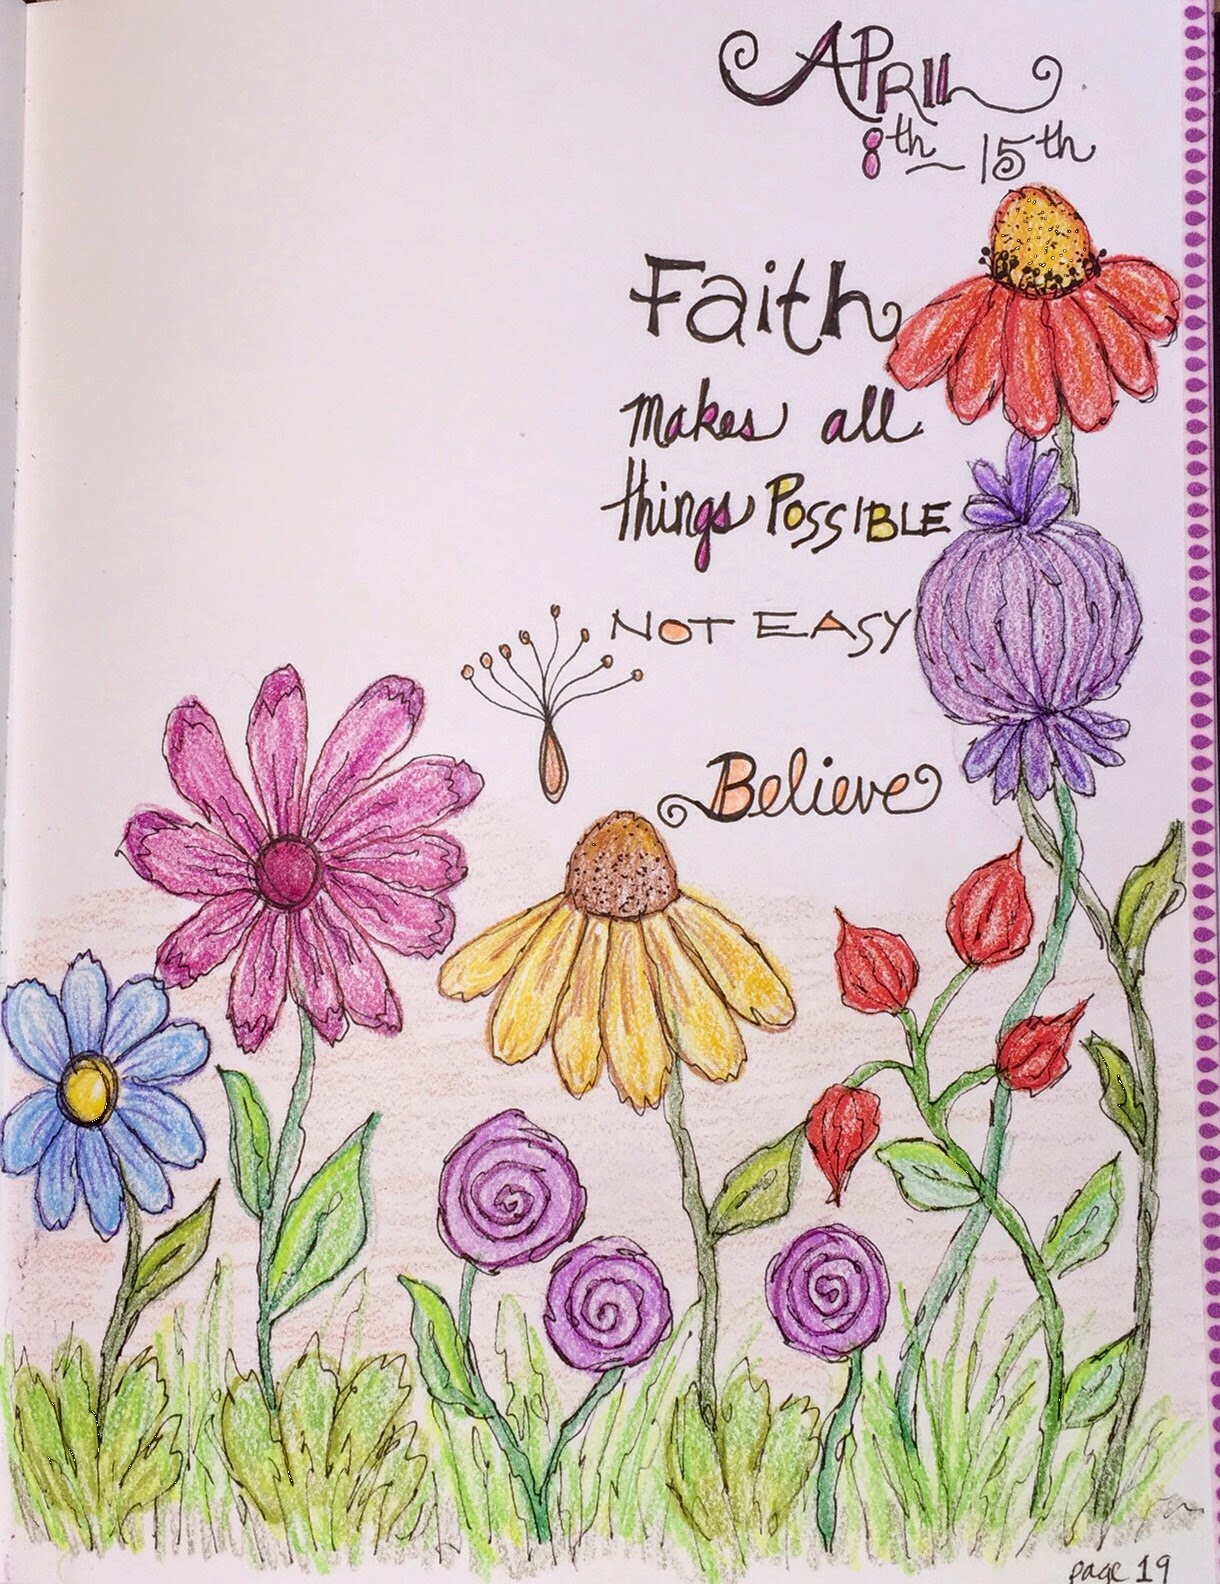 April
8th - 15th
Faith
makes all
things Possible
NOT EASY
Believe
page 19